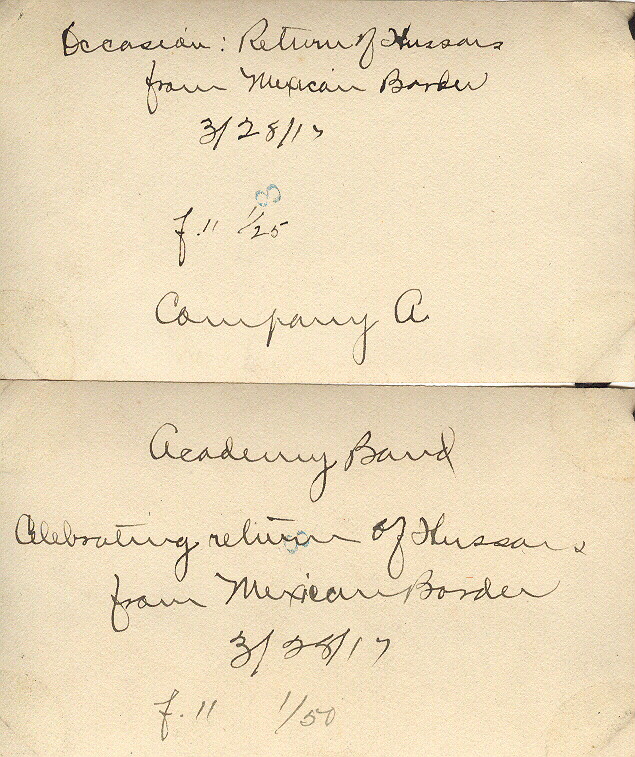 Occasion: Return of Hussars
from Mexican Border
3/28/17
8
f.11 1/25
Company A
Academy Band
Celebrating return of Hussars
8
from Mexican Border
3/28/17
f.11 1/50